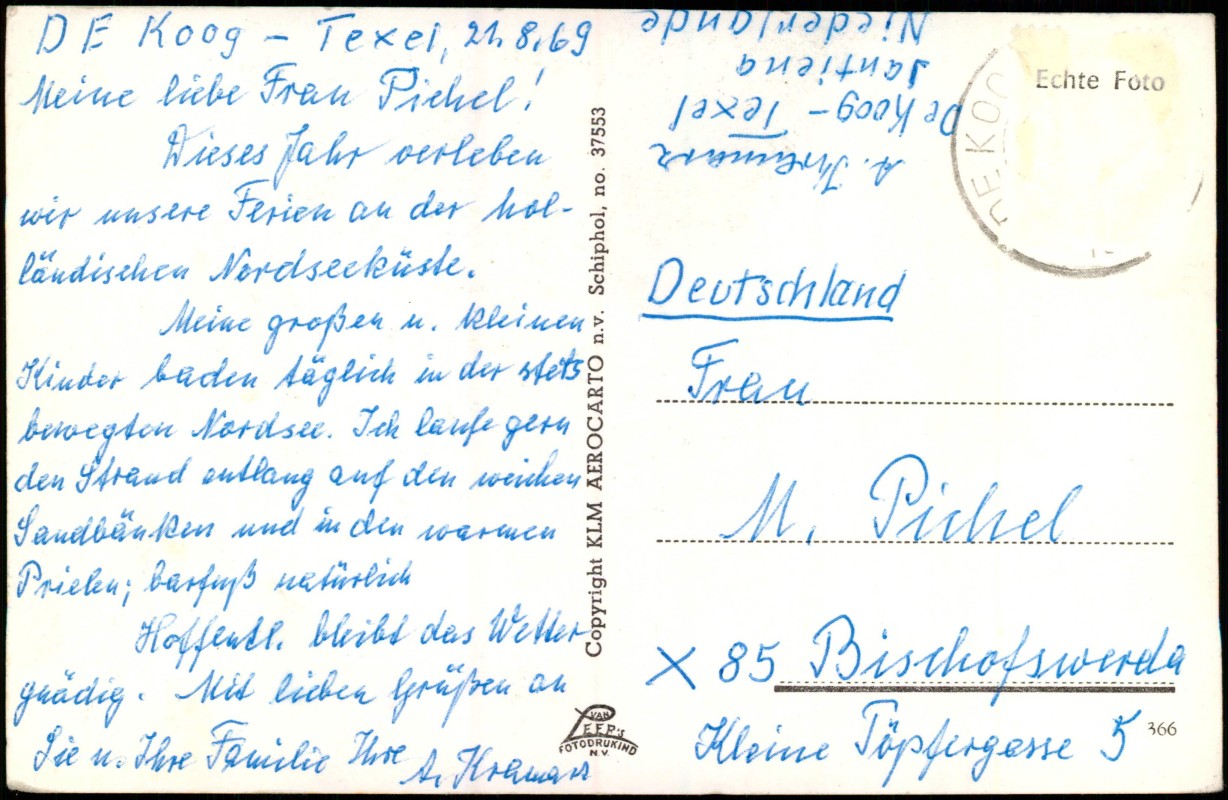 DE Koog - Texel, 21.8.69
Meine liebe Frau Pichel!
Dieses Jahr verleben
wir unsere Ferien an der hol-
ländischen Nordseeküste.
Meine großen u. kleinen
Kinder baden täglich in der stets
bewegten Nordsee. Ich laufe gern
den Strand entlang auf den weichen
Sandbänken und in den warmen
Prielen; barfuß natürlich
Hoffentl. bleibt das Wetter
gnädig. Mit lieben Grüßen an
Sie u. Ihre Familie Ihre
A.
Copyright KLM AEROCARTO n.v. Schiphol, no. 37553
VAN LEER's
FOTODRUKIND
N.V.
A.
De Koog - Texel
Jantiena
Niederlande
Echte Foto
DE KOO
Deutschland
Frau
M. Pichel
X 85 Bischofswerda
Kleine Töpfergasse 5
366